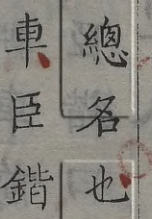 總名也
車臣鍇